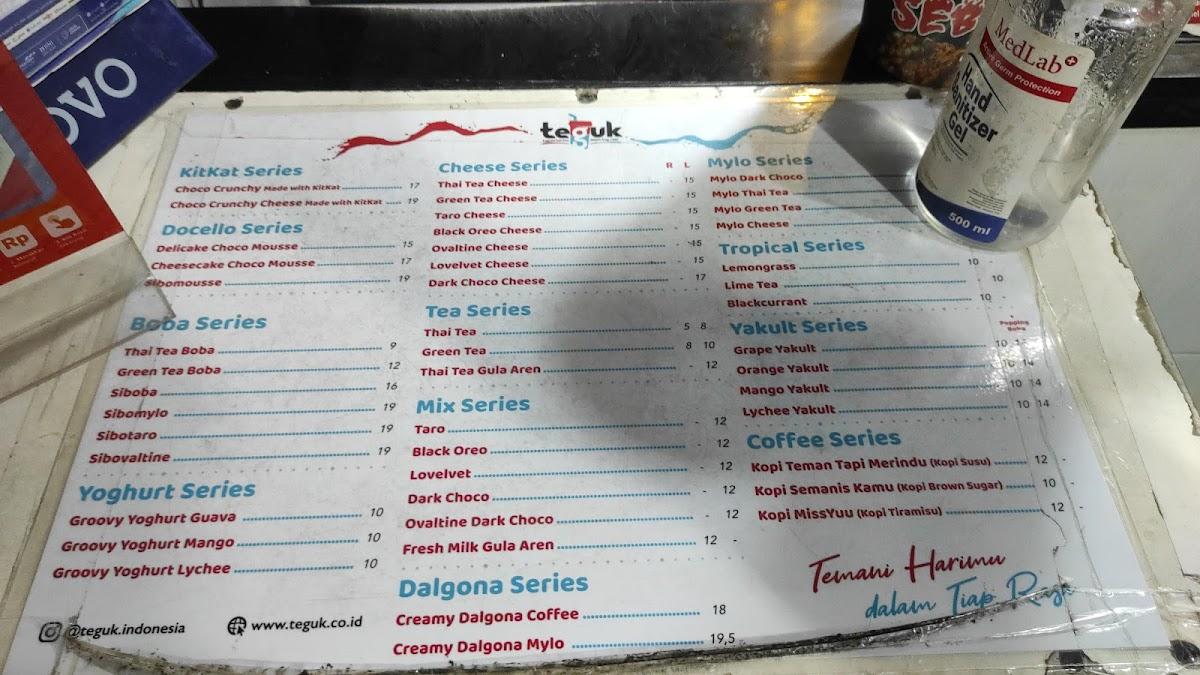 OVO
Rp
SEB
MedLab
Germ Protection
Hand
Sanitizer
Gel
500 ml
teguk
KitKat Series
Choco Crunchy Made with KitKat 17
Choco Crunchy Cheese Made with KitKat 19
Docello Series
Delicake Choco Mousse 15
Cheesecake Choco Mousse 17
Sibomousse 19
Boba Series
Thai Tea Boba 9
Green Tea Boba 12
Siboba 16
Sibomylo 19
Sibotaro 19
Sibovaltine 19
Yoghurt Series
Groovy Yoghurt Guava 10
Groovy Yoghurt Mango 10
Groovy Yoghurt Lychee 10
@teguk.indonesia
www.teguk.co.id
Cheese Series R L
Thai Tea Cheese - 15
Green Tea Cheese - 15
Taro Cheese - 15
Black Oreo Cheese - 15
Ovaltine Cheese - 15
Lovelvet Cheese - 15
Dark Choco Cheese - 17
Tea Series
Thai Tea 5 8
Green Tea 8 10
Thai Tea Gula Aren - 12
Mix Series
Taro - 12
Black Oreo - 12
Lovelvet - 12
Dark Choco - 12
Ovaltine Dark Choco - 12
Fresh Milk Gula Aren 12 -
Dalgona Series
Creamy Dalgona Coffee 18
Creamy Dalgona Mylo 19,5
Mylo Series
Mylo Dark Choco
Mylo Thai Tea
Mylo Green Tea
Mylo Cheese
Tropical Series
Lemongrass 10
Lime Tea 10
Blackcurrant 10 -
Yakult Series Popping Boba
Grape Yakult 10
Orange Yakult 10 14
Mango Yakult 10 14
Lychee Yakult 10 14
Coffee Series
Kopi Teman Tapi Merindu (Kopi Susu) 12 -
Kopi Semanis Kamu (Kopi Brown Sugar) 10 -
Kopi MissYuu (Kopi Tiramisu) 12 -
Temani Harimu
dalam Tiap Rasa